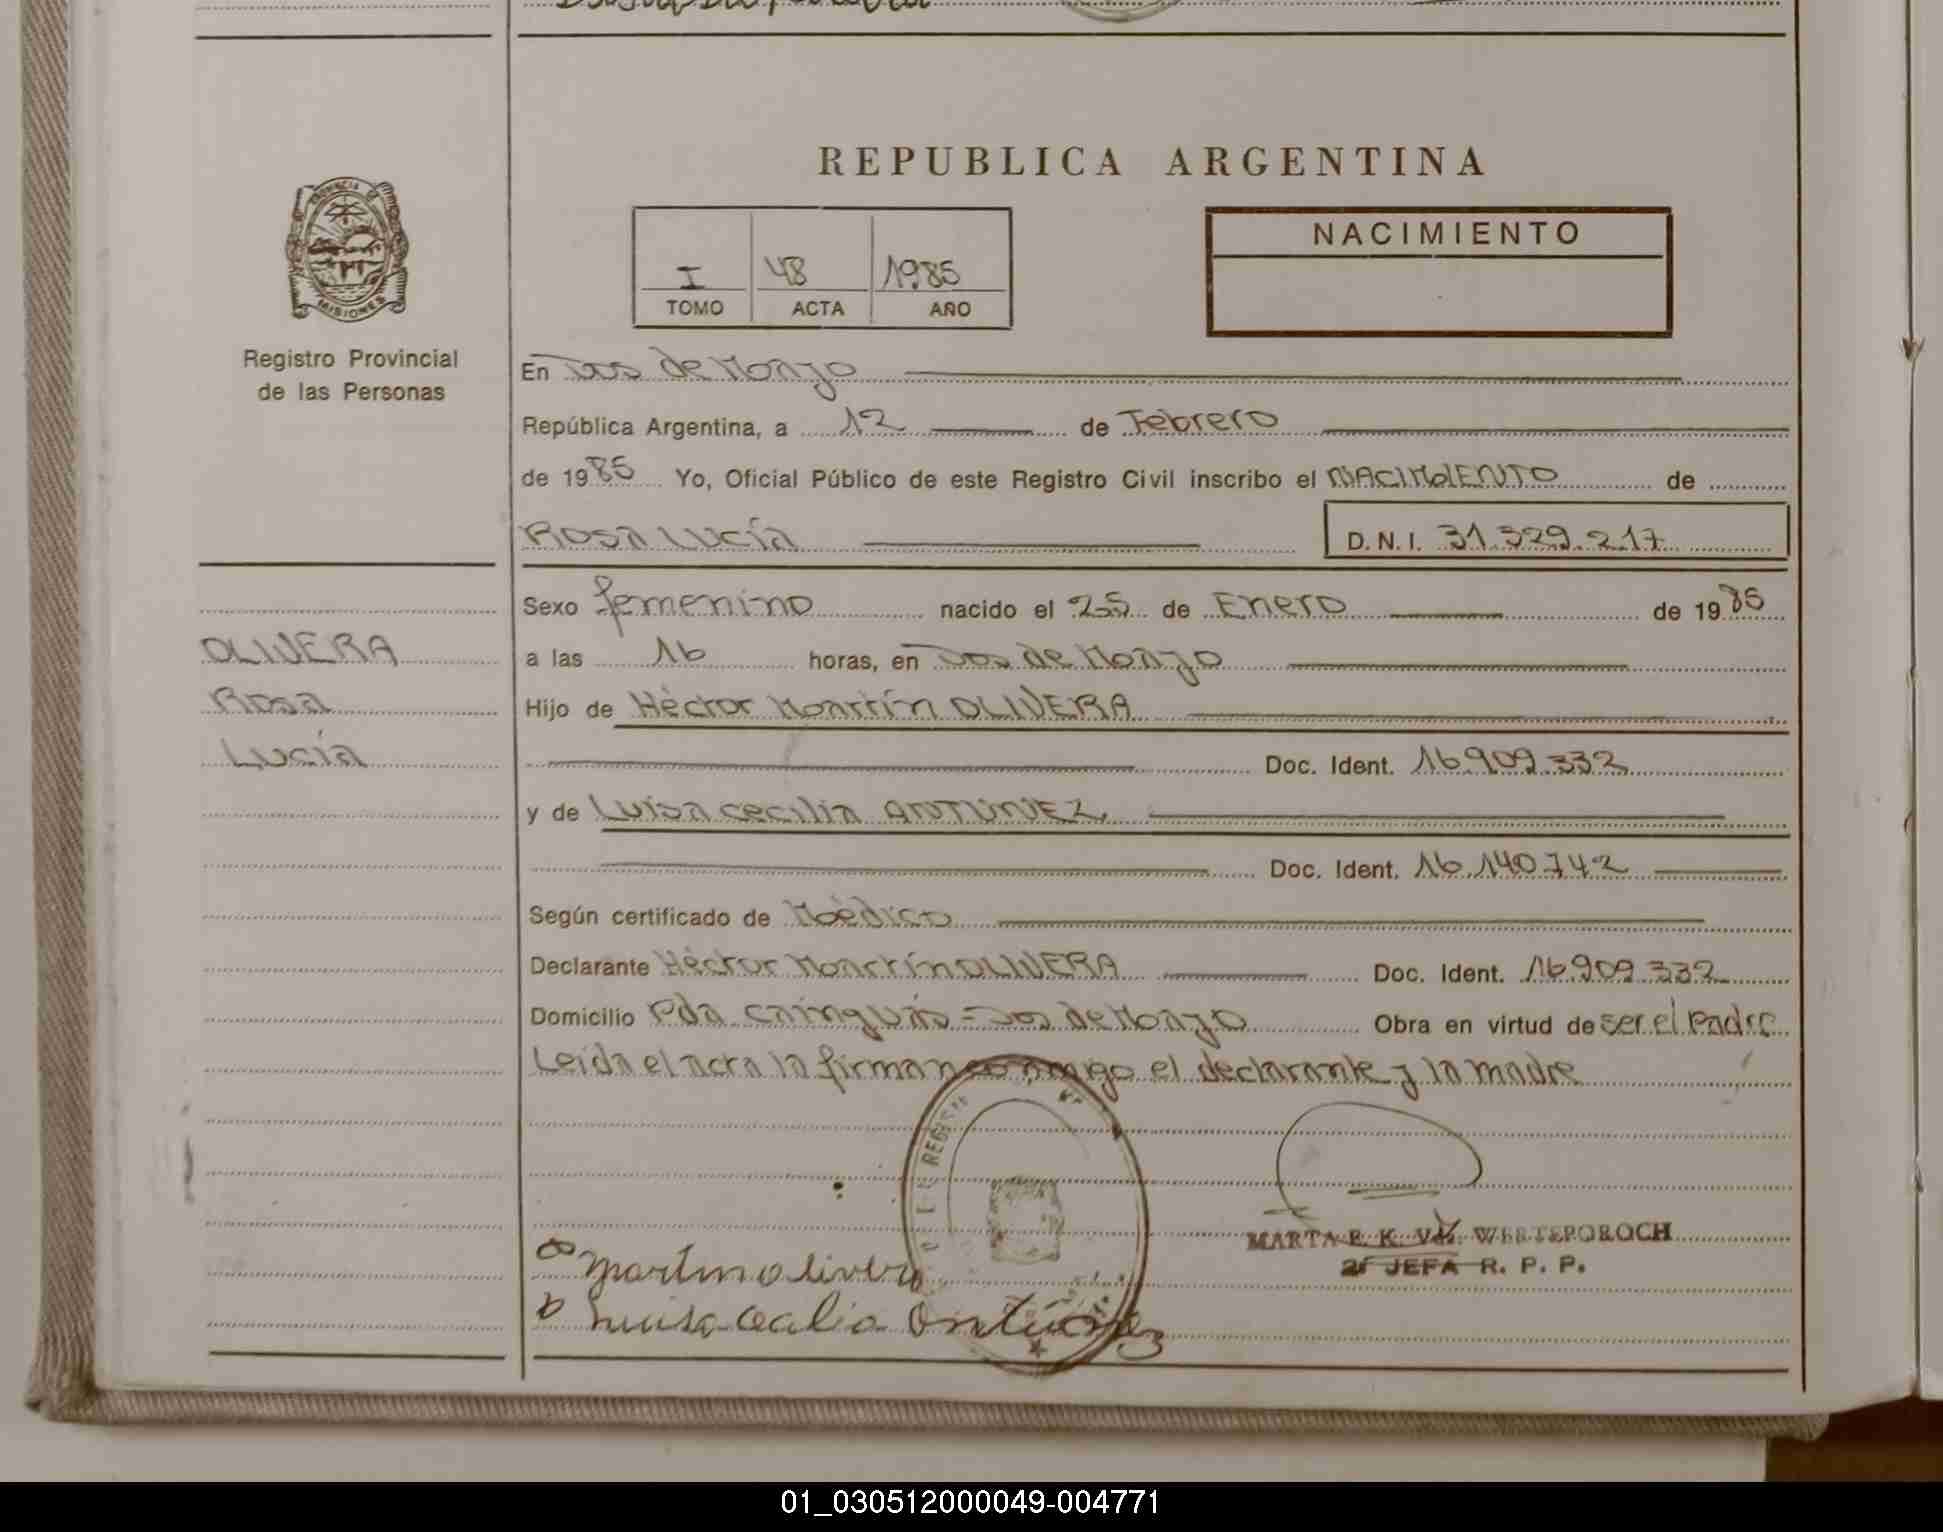 REPUBLICA ARGENTINA
PROVINCIA DE
MISIONES
Registro Provincial
de las Personas
I 48 1985
TOMO ACTA AÑO
NACIMIENTO
En Dos de Mayo
República Argentina, a 12 de Febrero
de 1985 Yo, Oficial Público de este Registro Civil inscribo el NACIMIENTO de
Rosa Lucía D.N.I. 31.329.217
Sexo femenino nacido el 25 de Enero de 1985
OLIVERA
Rosa
Lucía
a las 16 horas, en Dos de Mayo
Hijo de Héctor Martín OLIVERA
Doc. Ident. 16.909.332
y de Luisa Cecilia ANTUNEZ
Doc. Ident. 16.140.742
Según certificado de Médico
Declarante Héctor Martín OLIVERA Doc. Ident. 16.909.332
Domicilio Pda Cainguás - Dos de Mayo Obra en virtud de ser el Padre
Leída el acta la firman conmigo el declarante y la madre
REGIST
MARTA E. K. Vda. WERTEPOROCH
2ª JEFA R. P. P.
a martin olivera
b Luisa Cecilia Antunez
01_030512000049-004771